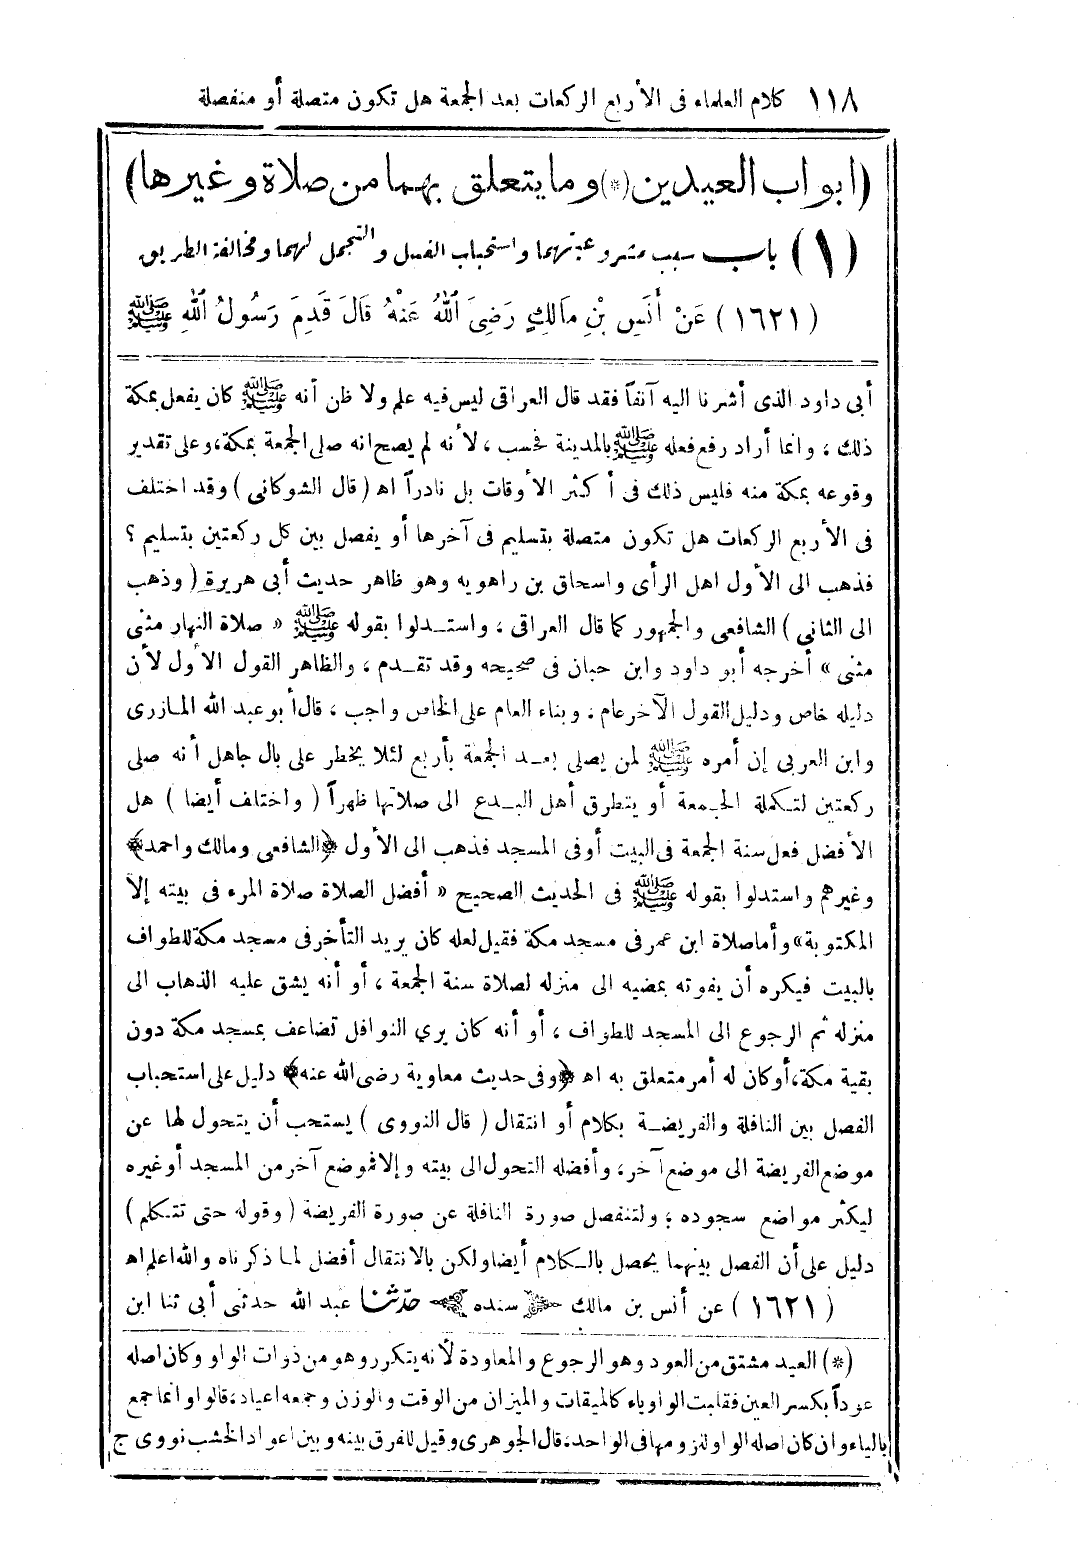 ١١٨ كلام العلماء فى الأربع الركعات بعد الجمعة هل تكون متصلة أو منفصلة
(ابواب العيدين (*) وما يتعلق بهما من صلاة وغيرها)
(١) باب سبب مشروعيتهما واستحباب الغسل والتجمل لهما ومخالفة الطريق
(١٦٢١) عَنْ أَنَسِ بْنِ مَالِكٍ رَضِىَ ٱللهُ عَنْهُ قَالَ قَدِمَ رَسُولُ ٱللهِ ﷺ
أبى داود الذى أشرنا اليه آنفاً فقد قال العراقى ليس فيه علم ولا ظن أنه ﷺ كان يفعل بمكة
ذلك ، وانما أراد رفع فعله ﷺ بالمدينة فحسب ، لأنه لم يصح انه صلى الجمعة بمكة، وعلى تقدير
وقوعه بمكة منه فليس ذلك فى أكثر الأوقات بل نادراً اه (قال الشوكانى) وقد اختلف
فى الأربع الركعات هل تكون متصلة بتسليم فى آخرها أو يفصل بين كل ركعتين بتسليم ؟
فذهب الى الأول اهل الرأى واسحاق بن راهويه وهو ظاهر حديث أبى هريرة (وذهب
الى الثانى) الشافعى والجمهور كما قال العراقى ، واستدلوا بقوله ﷺ « صلاة النهار مثنى
مثنى » أخرجه أبو داود وابن حبان فى صحيحه وقد تقدم ، والظاهر القول الأول لأن
دليله خاص ودليل القول الآخر عام . وبناء العام على الخاص واجب ، قال أبو عبد الله المازرى
وابن العربى إن أمره ﷺ لمن يصلى بعد الجمعة بأربع لئلا يخطر على بال جاهل أنه صلى
ركعتين لتكملة الجمعة أو يتطرق أهل البدع الى صلاتها ظهراً (واختلف أيضا) هل
الأفضل فعل سنة الجمعة فى البيت أو فى المسجد فذهب الى الأول ﴿الشافعى ومالك واحمد﴾
وغيرهم واستدلوا بقوله ﷺ فى الحديث الصحيح « أفضل الصلاة صلاة المرء فى بيته إلا
المكتوبة» وأما صلاة ابن عمر فى مسجد مكة فقيل لعله كان يريد التأخر فى مسجد مكة للطواف
بالبيت فيكره أن يفوته بمضيه الى منزله لصلاة سنة الجمعة ، أو أنه يشق عليه الذهاب الى
منزله ثم الرجوع الى المسجد للطواف ، أو أنه كان يري النوافل تضاعف بمسجد مكة دون
بقية مكة، أوكان له أمر متعلق به اه ﴿وفى حديث معاوية رضى الله عنه﴾ دليل على استحباب
الفصل بين النافلة والفريضة بكلام أو انتقال (قال النووى) يستحب أن يتحول لها عن
موضع الفريضة الى موضع آخر، وأفضله التحول الى بيته وإلا فموضع آخر من المسجد أو غيره
ليكثر مواضع سجوده ؛ ولتنفصل صورة النافلة عن صورة الفريضة (وقوله حتى تتكلم)
دليل على أن الفصل بينهما يحصل بالكلام أيضا ولكن بالانتقال أفضل لما ذكرناه والله اعلم اه
(١٦٢١) عن أنس بن مالك ﴿ سنده ﴾ حدثنا عبد الله حدثنى أبى ثنا ابن
(*) العيد مشتق من العود وهو الرجوع والمعاودة لأنه يتكرر وهو من ذوات الواو وكان اصله
عوداً بكسر العين فقلبت الواو ياء كالميقات والميزان من الوقت والوزن وجمعه اعياد، قالوا وانما جمع
بالياء وان كان اصله الواو للزومها فى الواحد، قال الجوهرى وقيل للفرق بينه وبين اعواد الخشب نووى ج